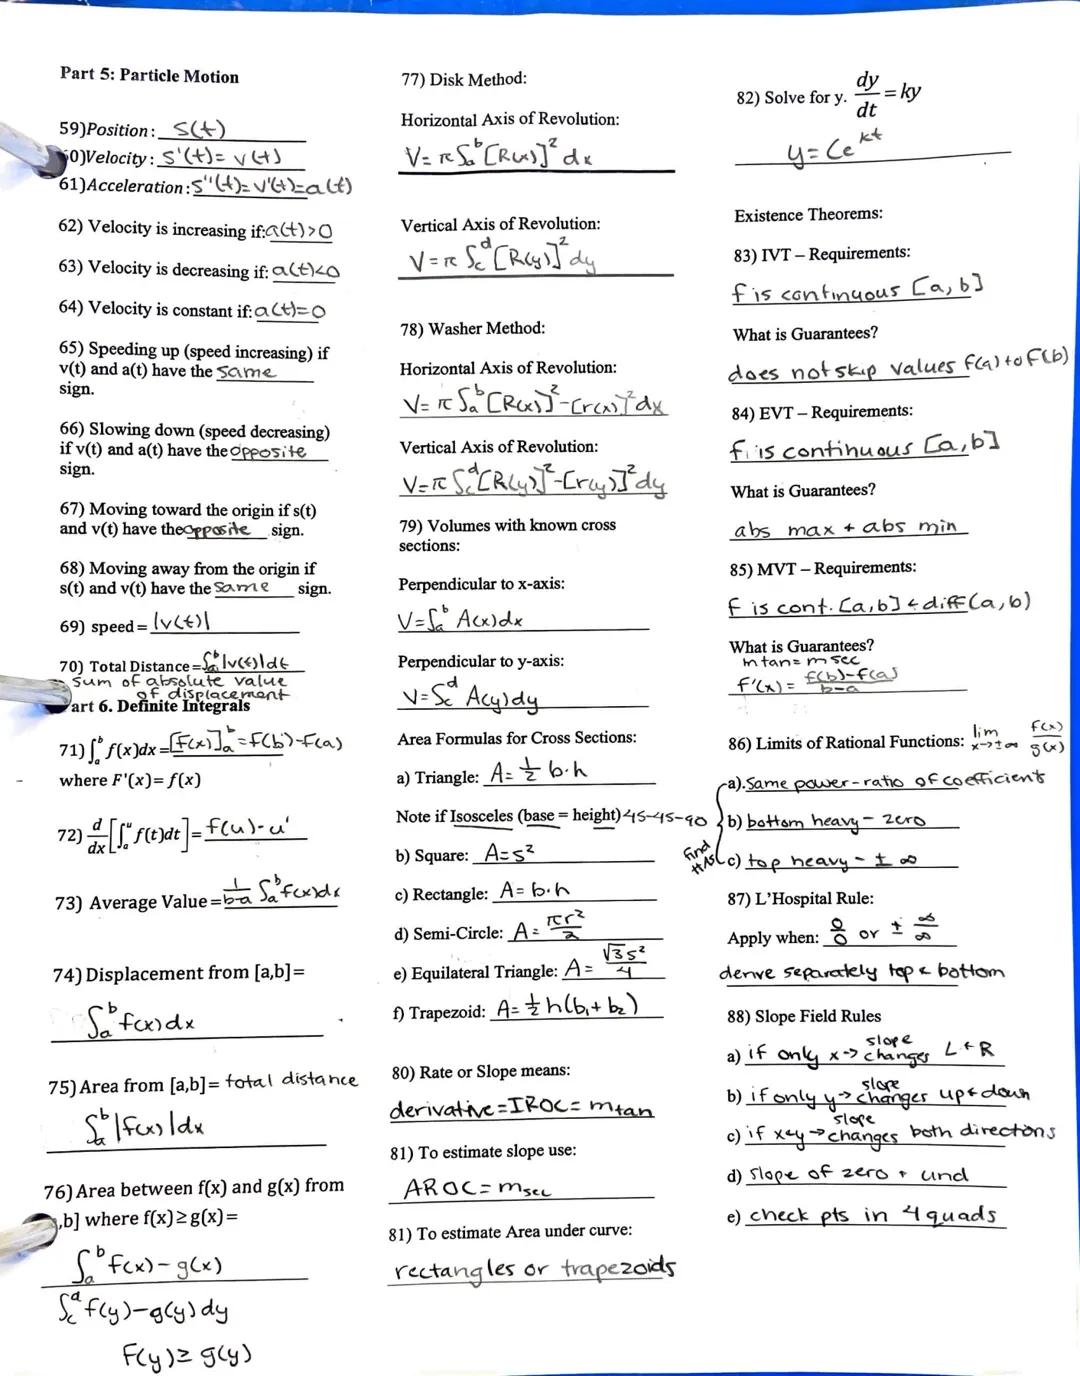 Part 5: Particle Motion
59)Position: s(t)
0)Velocity: s'(t)= v(t)
61)Acceleration: s''(t)= v'(t)=a(t)
62) Velocity is increasing if: a(t)>0
63) Velocity is decreasing if: a(t)<0
64) Velocity is constant if: a(t)=0
65) Speeding up (speed increasing) if
v(t) and a(t) have the same
sign.
66) Slowing down (speed decreasing)
if v(t) and a(t) have the opposite
sign.
67) Moving toward the origin if s(t)
and v(t) have the opposite sign.
68) Moving away from the origin if
s(t) and v(t) have the same sign.
69) speed = |v(t)|
70) Total Distance = ∫_a^b |v(t)|dt
sum of absolute value
of displacement
art 6. Definite Integrals
71) ∫_a^b f(x)dx = [F(x)]_a^b = F(b)-F(a)
where F'(x)= f(x)
72) d/dx [∫_a^u f(t)dt] = f(u)·u'
73) Average Value = 1/b-a ∫_a^b f(x)dx
74) Displacement from [a,b]=
∫_a^b f(x)dx
75) Area from [a,b]= total distance
∫_a^b |f(x)|dx
76) Area between f(x) and g(x) from
,b] where f(x)≥g(x)=
∫_a^b f(x)-g(x)
∫_c^d f(y)-g(y)dy
F(y)≥ g(y)
77) Disk Method:
Horizontal Axis of Revolution:
V= π∫_a^b [R(x)]² dx
Vertical Axis of Revolution:
V=π ∫_c^d [R(y)]² dy
78) Washer Method:
Horizontal Axis of Revolution:
V= π ∫_a^b [R(x)]²-[r(x)]²dx
Vertical Axis of Revolution:
V=π ∫_c^d [R(y)]²-[r(y)]²dy
79) Volumes with known cross
sections:
Perpendicular to x-axis:
V=∫_a^b A(x)dx
Perpendicular to y-axis:
V=∫_c^d A(y)dy
Area Formulas for Cross Sections:
a) Triangle: A= 1/2 b·h
Note if Isosceles (base = height) 45-45-90
b) Square: A=s²
c) Rectangle: A= b·h
d) Semi-Circle: A= πr²/2
e) Equilateral Triangle: A= √3s²/4
f) Trapezoid: A= 1/2 h(b₁+b₂)
80) Rate or Slope means:
derivative=IROC= mtan
81) To estimate slope use:
AROC= msec
81) To estimate Area under curve:
rectangles or trapezoids
82) Solve for y. dy/dt = ky
y= Ce^kt
Existence Theorems:
83) IVT – Requirements:
f is continuous [a,b]
What is Guarantees?
does not skip values f(a) to f(b)
84) EVT – Requirements:
f is continuous [a,b]
What is Guarantees?
abs max + abs min
85) MVT – Requirements:
f is cont. [a,b] + diff(a,b)
What is Guarantees?
mtan= msec
f'(x)= f(b)-f(a)/b-a
86) Limits of Rational Functions: lim x->±∞ f(x)/g(x)
a) same power-ratio of coefficient
b) bottom heavy - zero
Find HAs
c) top heavy - ±∞
87) L'Hospital Rule:
Apply when: 0/0 or ± ∞/∞
derive separately top & bottom
88) Slope Field Rules
a) if only x-> slope changes L+R
b) if only y-> slope changes up+down
c) if x+y-> slope changes both directons
d) slope of zero + und
e) check pts in 4 quads